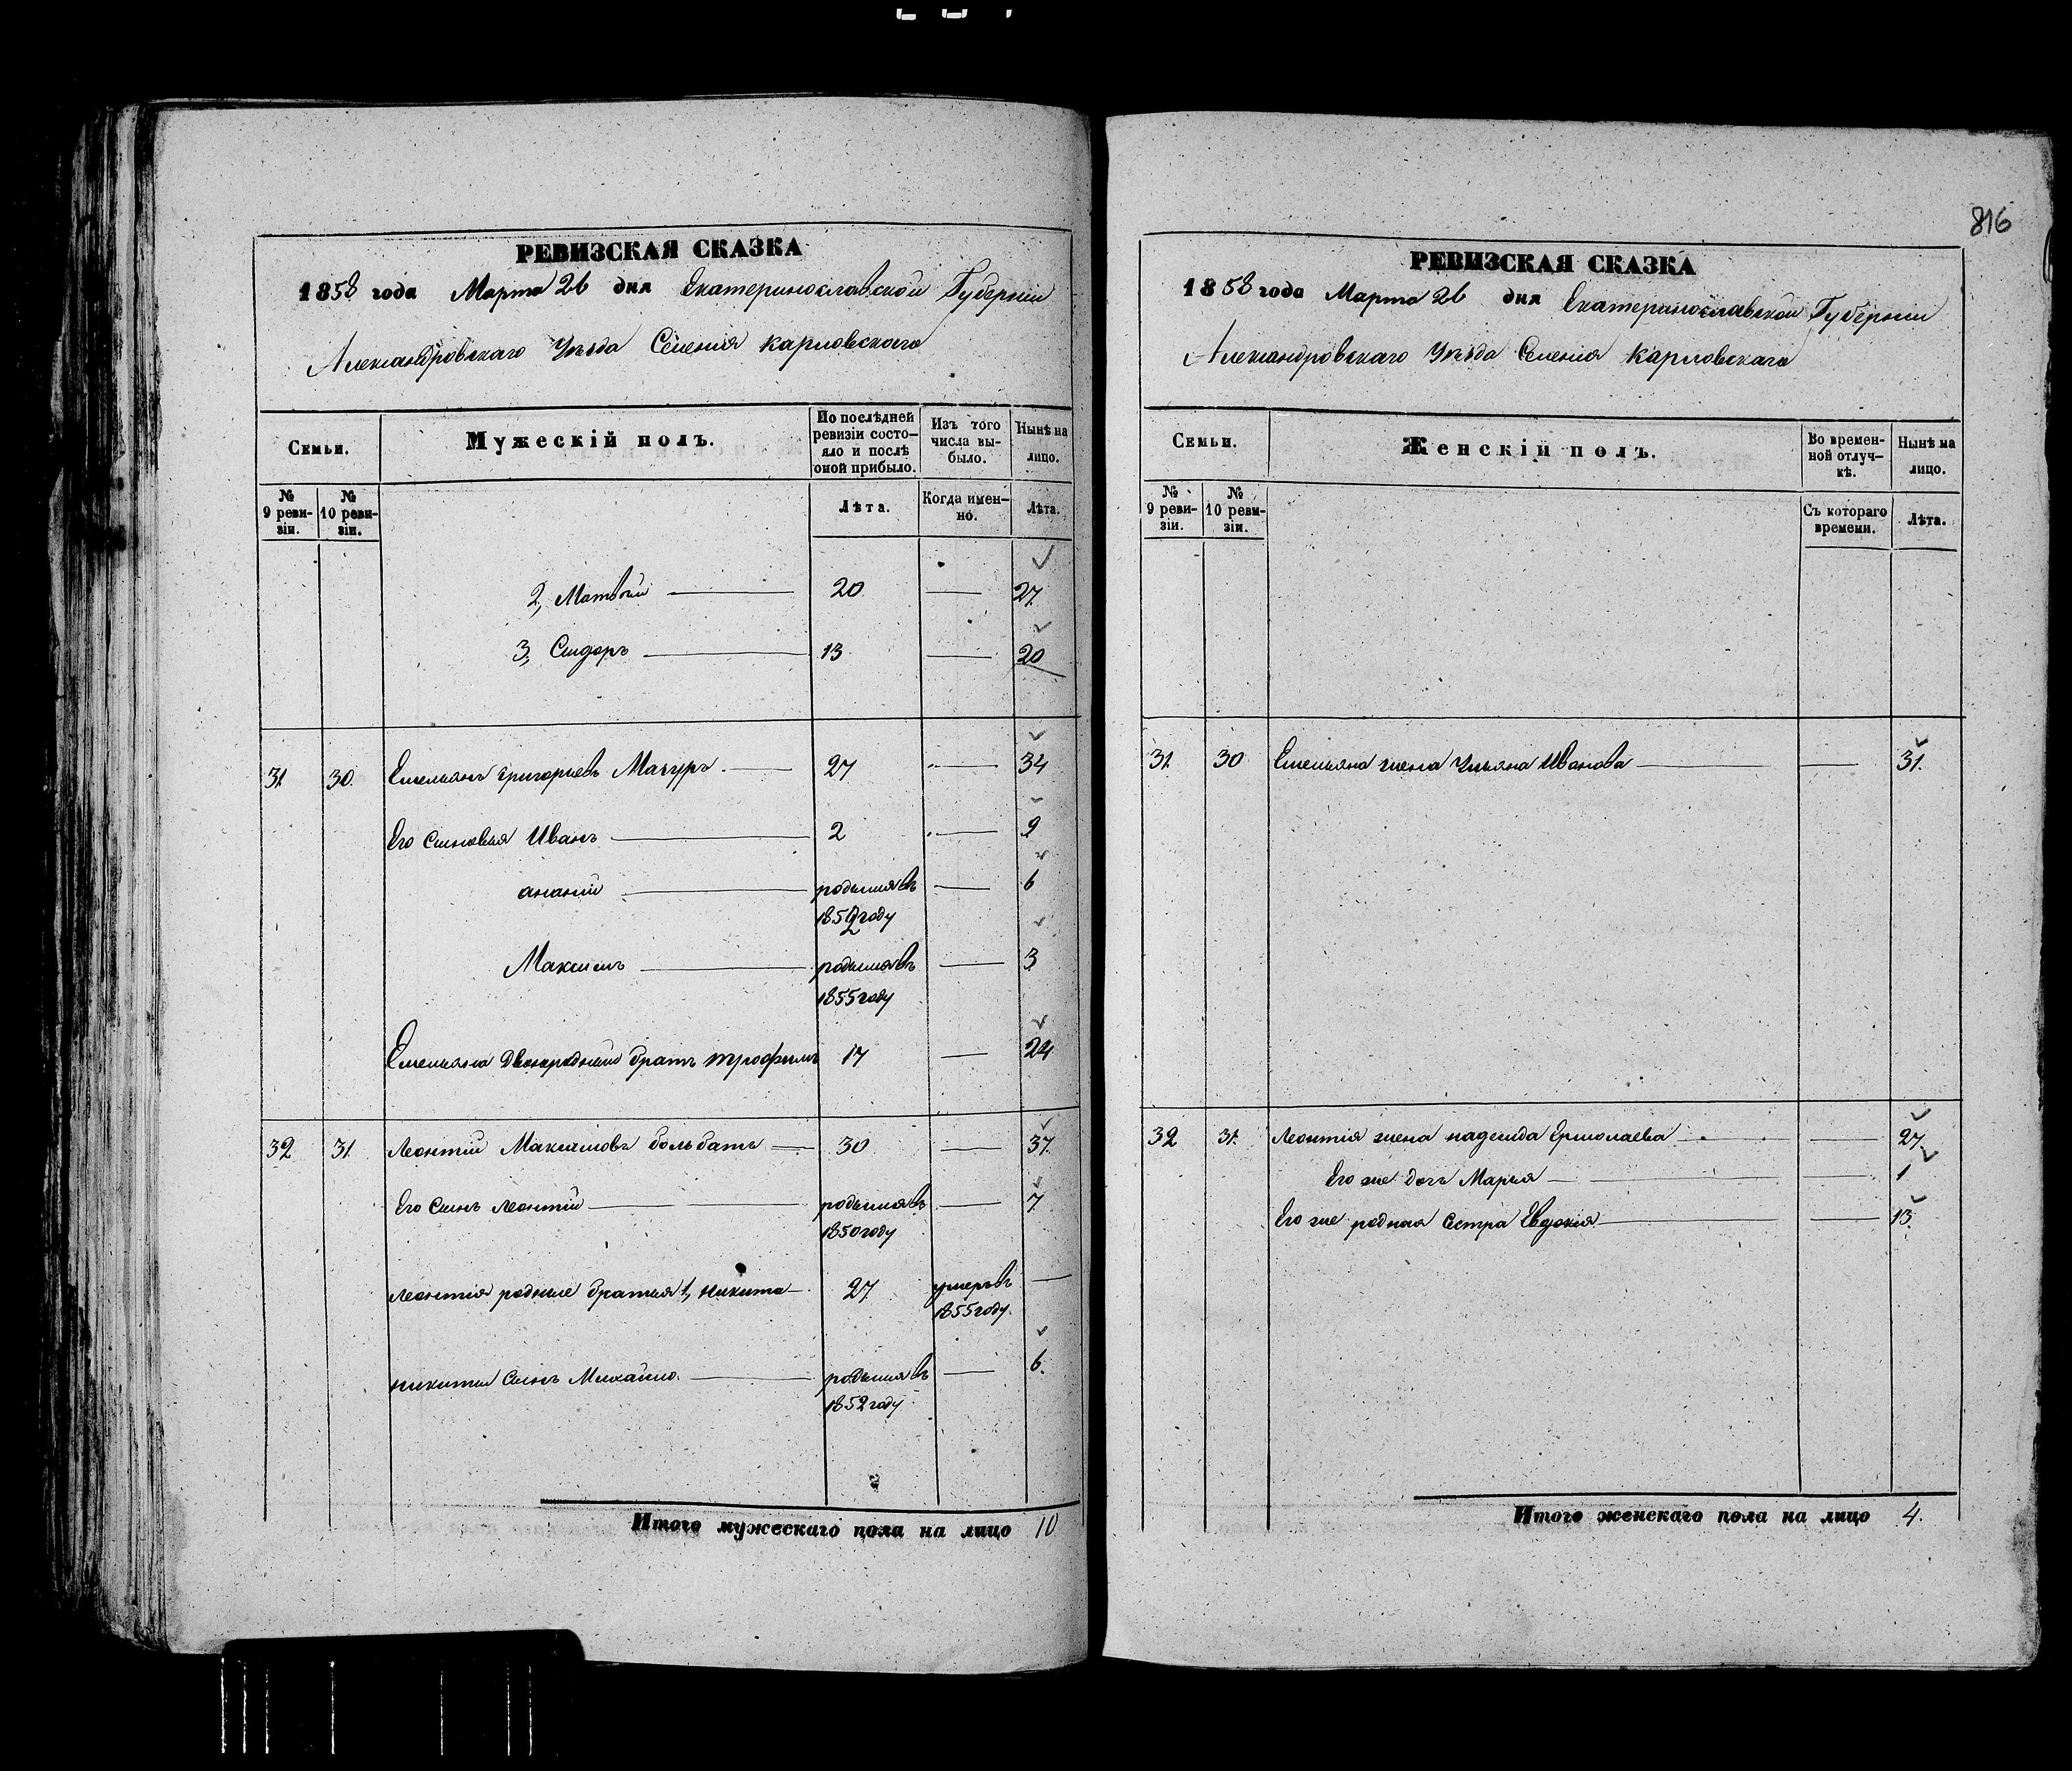 816
РЕВИЗСКАЯ СКАЗКА
1858 года Марта 26 дня Екатеринославской Губерніи
Александровскаго Уѣзда Селенія Карловскаго
Семьи.
Мужескій полъ.
По послѣдней ревизіи состо-
яло и послѣ
оной прибыло.
Изъ того
числа вы-
было.
Нынѣ на
лицо.
№ 9 реви-
зіи.
№ 10 реви-
зіи.
Лѣта.
Когда имен-
но.
Лѣта.
2, Матвѣй 20 27
3, Сидоръ 13 20
31 30. Емельянъ Григорьевъ Мазуръ 27 34
Его Сыновья Иванъ 2 9
ананій родился въ 6
1852 году
Максимъ родился въ 3
1855 году
Емельяна Двоюродный братъ трофимъ 17 24
32 31. Леонтій Максимовъ больбатъ 30 37.
Его Сынъ Леонтій родился въ 7
1850 году
Леонтія родные братья 1, Никита 27 умеръ въ
1855 году.
Никиты Сынъ Михайло родился въ 6.
1852 году
Итого мужескаго пола на лицо 10
РЕВИЗСКАЯ СКАЗКА
1858 года Марта 26 дня Екатеринославской Губерніи
Александровскаго Уѣзда Селенія Карловскаго
Семьи.
Женскій полъ.
Во времен-
ной отлуч-
кѣ.
Нынѣ на
лицо.
№ 9 реви-
зіи.
№ 10 реви-
зіи.
Съ котораго
времени.
Лѣта.
31. 30 Емельяна жена Ульяна Иванова 31.
32 31. Леонтія жена надежда Ермолаева 27.
Его же дочь Марья 1
Его же родная Сестра Евдокія 13.
Итого женскаго пола на лицо 4.